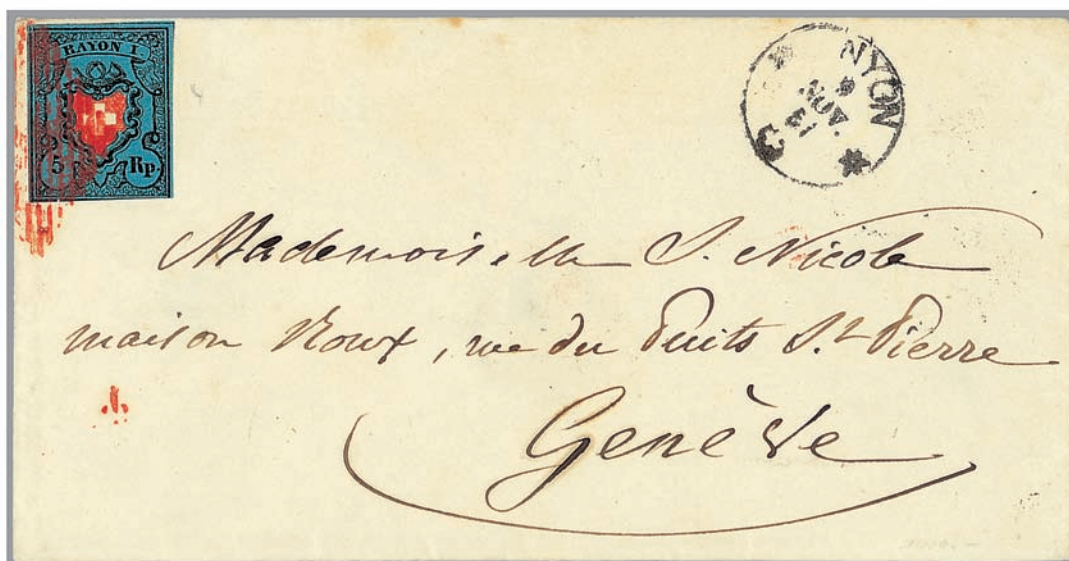 RAYON I
5 Rp.
NYON
9
NOV.
51
Mademoiselle S. Nicole
maison Roux, rue du Puits St Pierre
Genève